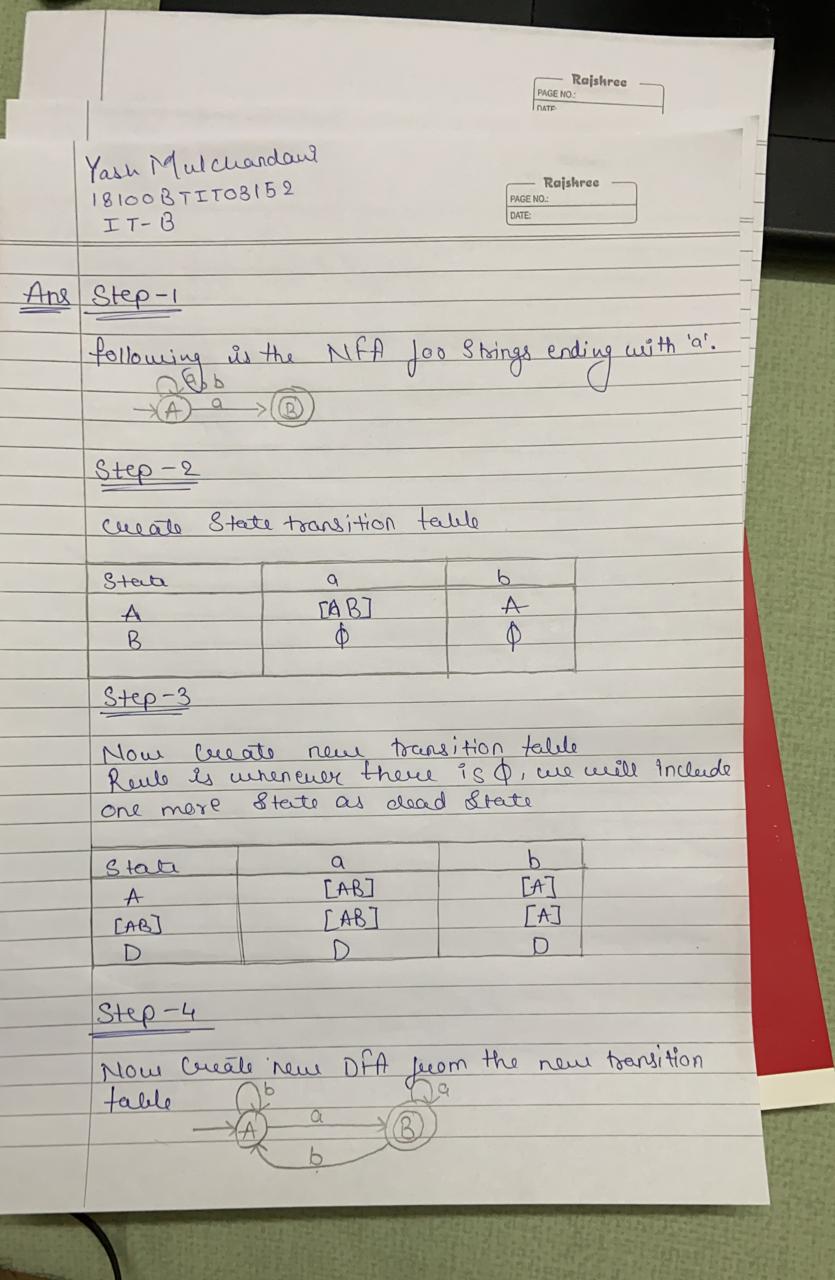 Rajshree
PAGE NO.:
DATE:
Yash Mulchandani
Rajshree
18100BTIT03152
PAGE NO.:
IT-B
DATE:
Ans Step-1
following is the NFA for Strings ending with 'a'.
a, b
A a B
Step-2
Create State transition table
State a b
A [AB] A
B ϕ ϕ
Step-3
Now Create new transition table
Rule is whenever there is ϕ, we will include
one more State as dead State
State a b
A [AB] [A]
[AB] [AB] [A]
D D D
Step-4
Now Create new DFA from the new transition
table
b a
A a B
b